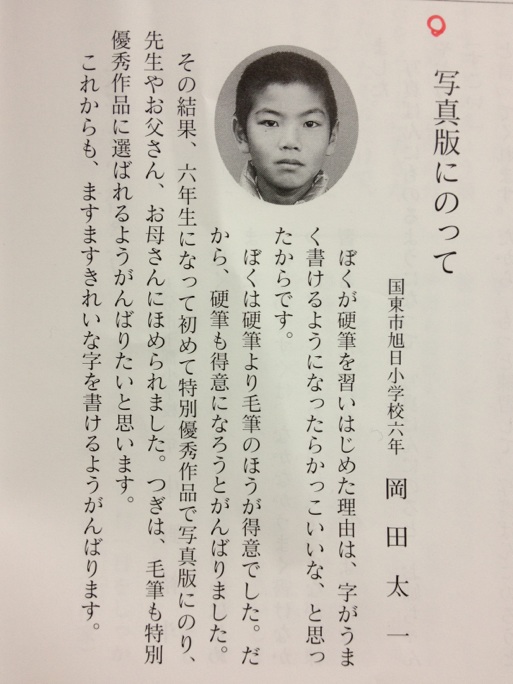 写真版にのって
国東市旭日小学校六年　岡田太一
ぼくが硬筆を習いはじめた理由は、字がうま
く書けるようになったらかっこいいな、と思っ
たからです。
ぼくは硬筆より毛筆のほうが得意でした。だ
から、硬筆も得意になろうとがんばりました。
その結果、六年生になって初めて特別優秀作品で写真版にのり、
先生やお父さん、お母さんにほめられました。つぎは、毛筆も特別
優秀作品に選ばれるようがんばりたいと思います。
これからも、ますますきれいな字を書けるようがんばります。